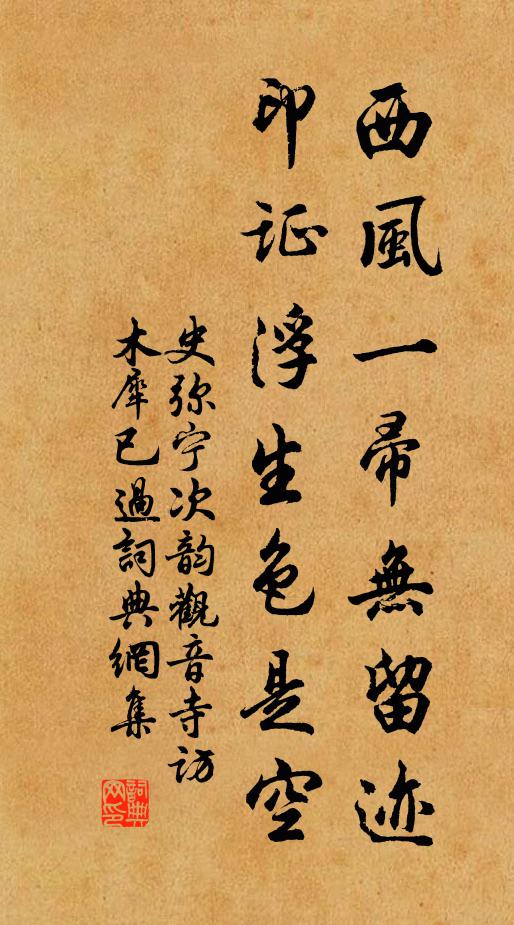 西風一帚無留迹
印证浮生色是空
史弥宁次韵觀音寺访
木犀已過詞典網集
詞典網印